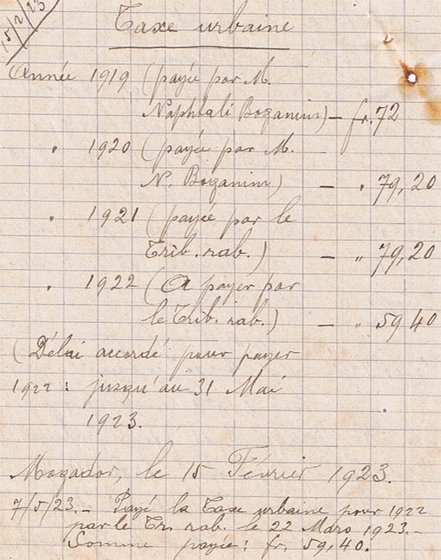 15/2/23
Taxe urbaine
Année 1919 (payée par M.
Naphtali Boganim) — fr. 72
" 1920 (payée par M.
N. Boganim) — " 79,20
" 1921 (payée par le
Trib. rab.) — " 79,20
" 1922 (à payer par
le Trib. rab.) — " 59 40
(Délai accordé pour payer
1922 : jusqu'au 31 Mai
1923.
Mogador, le 15 Février 1923.
7/5/23. — Payé la Taxe urbaine pour 1922
par le Tr. rab. le 22 Mars 1923. —
Somme payée : fr. 59,40.